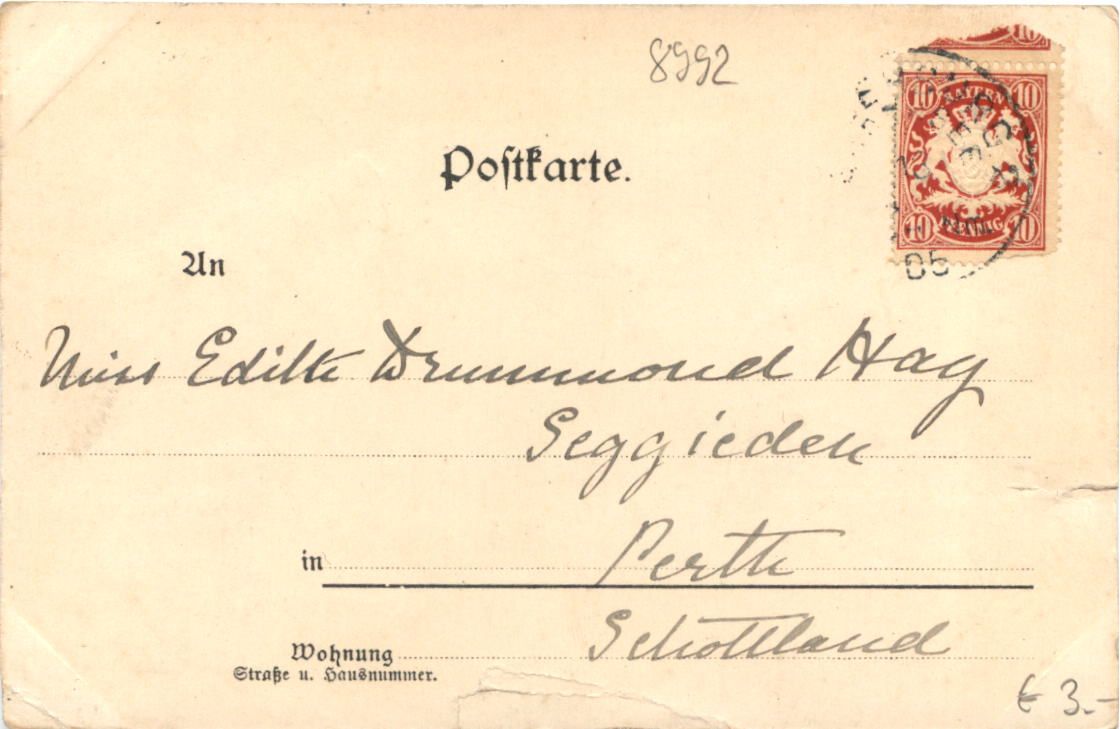 8992
10 10
BAYERN
10 10
PFENNIG
10 10
05
Postkarte.
An
Miss Edith Drummond Hay
Seggieden
in Perth
Schottland
Wohnung
Straße u. Hausnummer.
€ 3.-